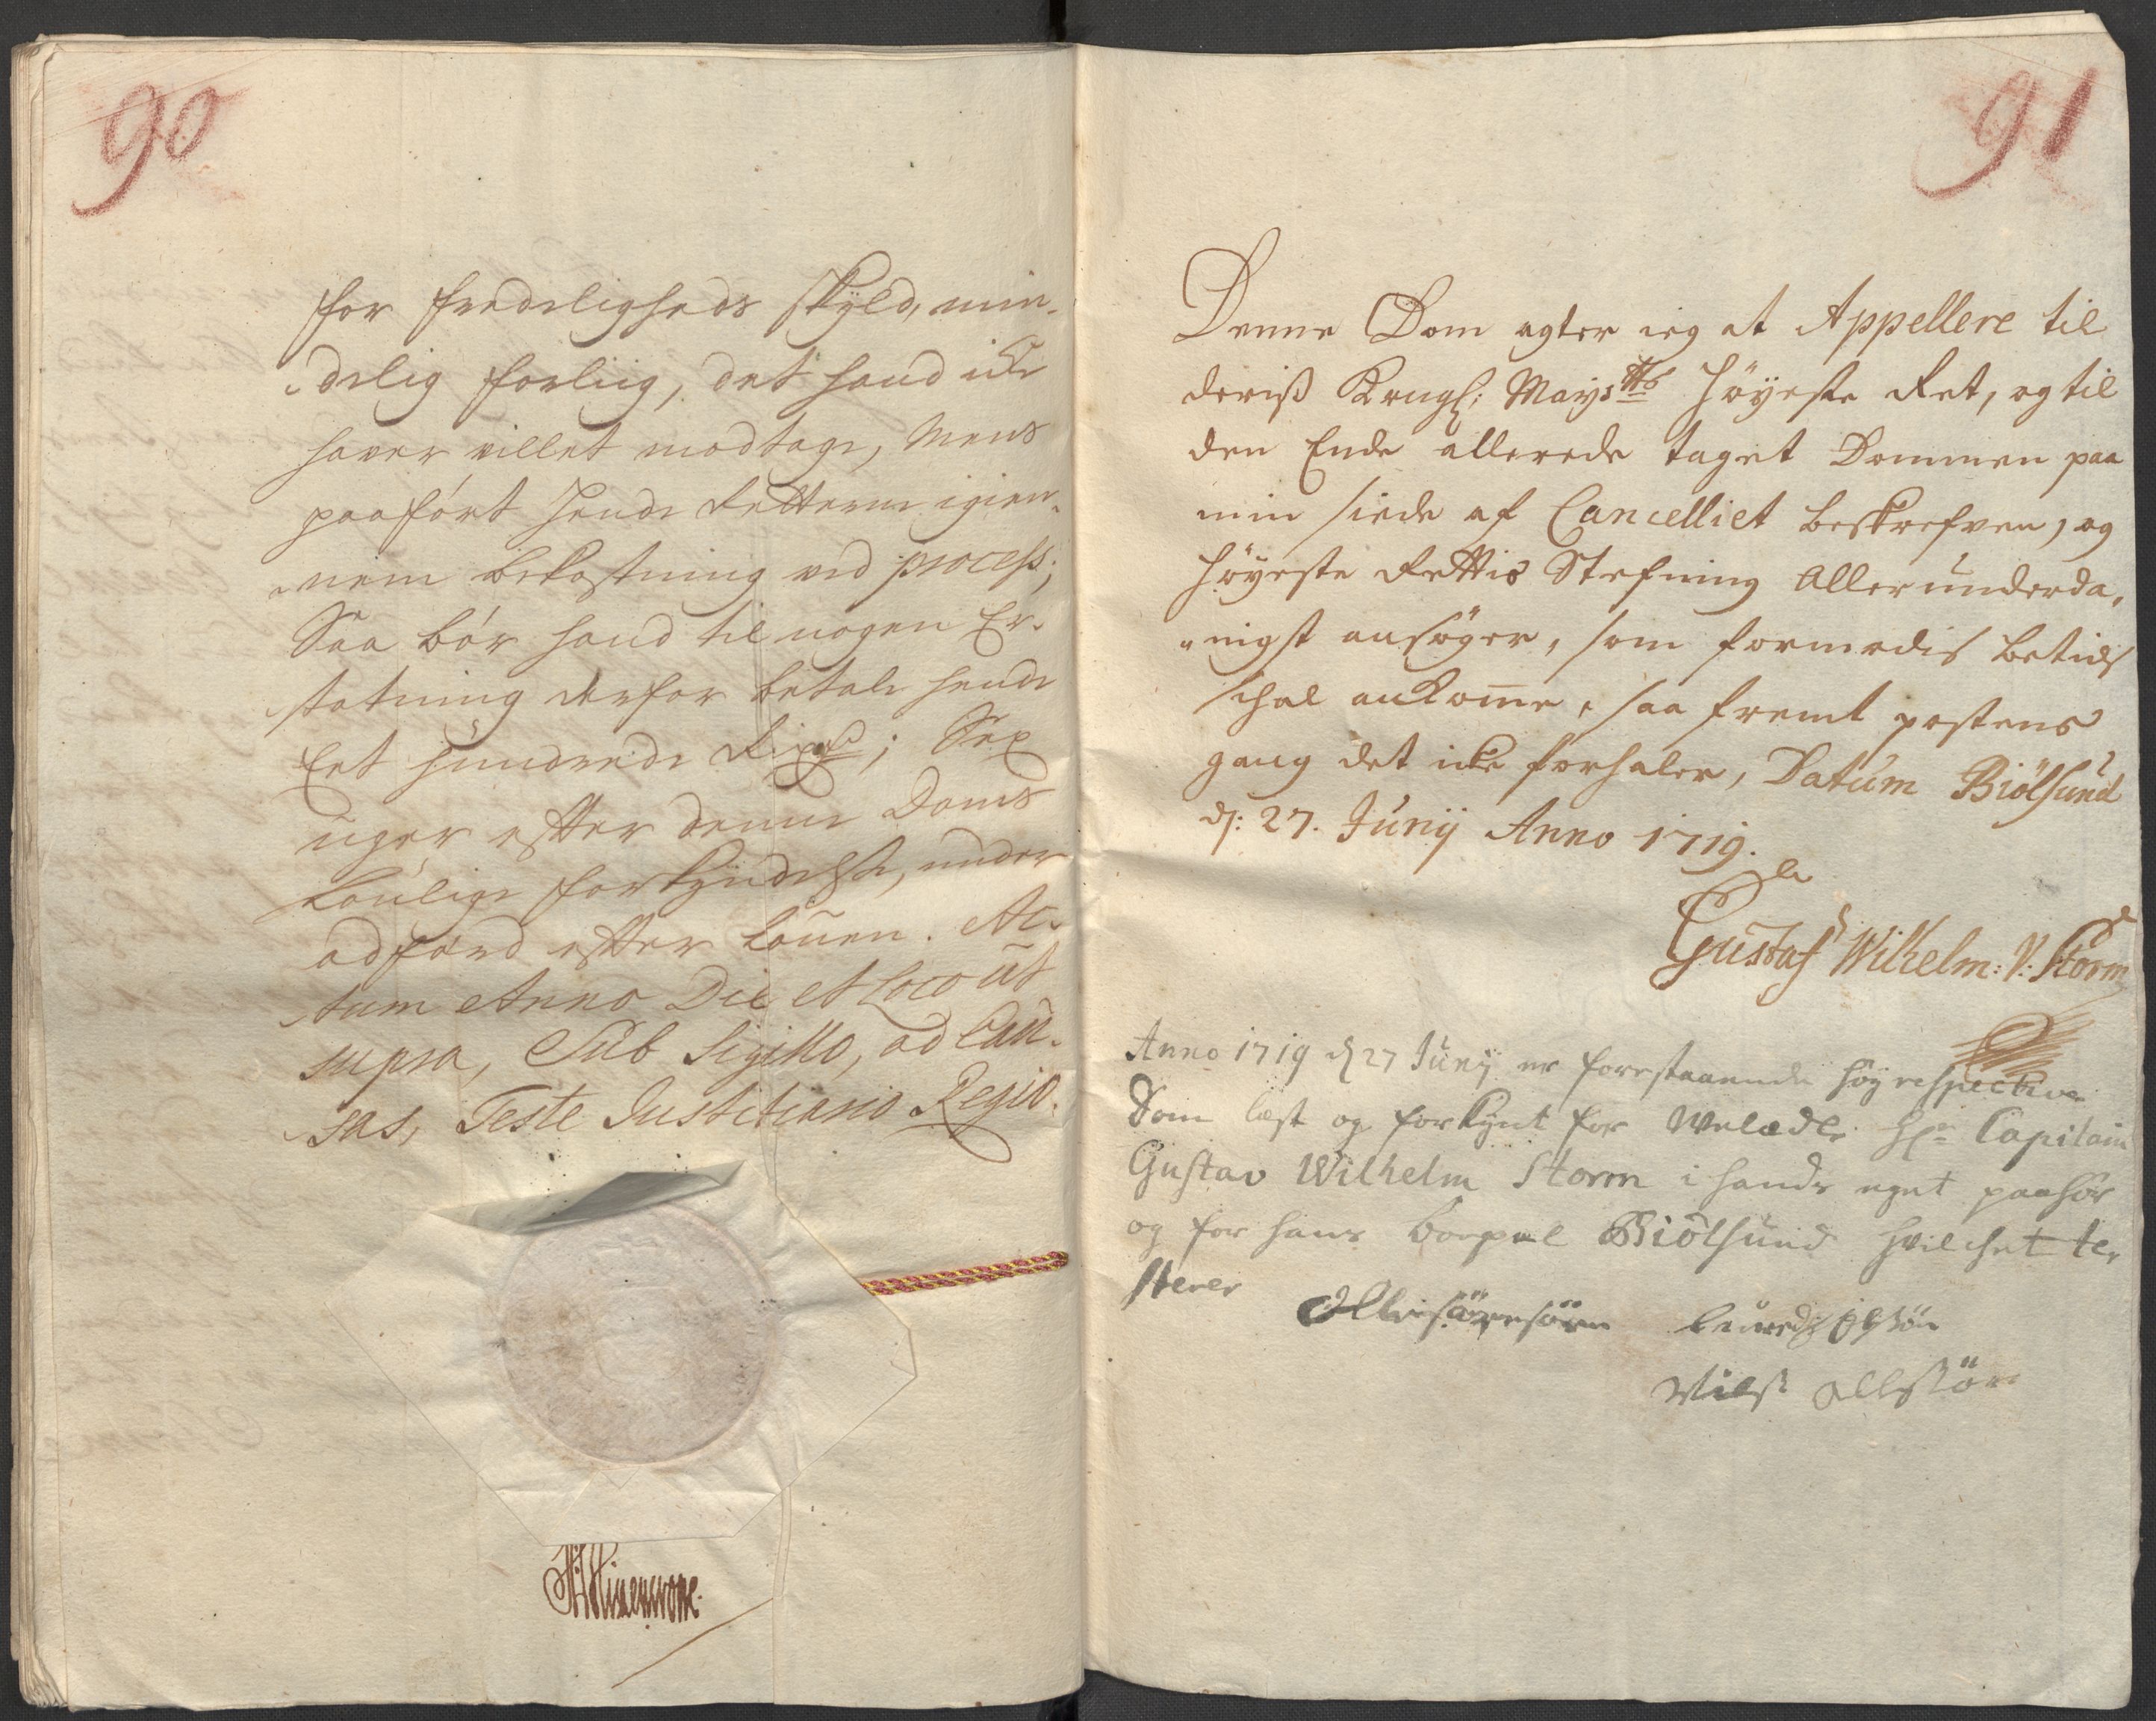 90
for fredeligheds skyld, min-
delig forliig, det hand icke
haver villet modtage, Mens
paaført hende Retterne igien-
nem bekostning ved process;
Saa bør hand til nogen Er-
statning derfor betale hende
Eet hundrede Rixdr; Sex
uger efter denne Doms
loulige forkyndelse, under
adfærd efter louen. Ac-
tum Anno Die et Loco ut
supra, Sub Sigillo, ad Cau-
sas, Teste Justitiario Regio.
91
Denne Dom agter ieg at Appellere til
deriß Kongl: Mayst<sup>ts</sup> høyeste Ret, og til
den Ende allerede taget Dommen paa
min siede af Cancelliet beskrefven, og
høyeste Rettis Stefning Allerunderda,
nigst ansøger, som formodis betids
schal ankom̄e, saa fremt postens
gang det icke forhaler, Datum Biölsund
d: 27. Junij Anno 1719.
Gustaf Wilhelm: V: Storm
Anno 1719 d 27 Junij er forestaaende høyrespective
Dom læst og forkynt for Welædle Hr Capitain
Gustav Wilhelm Storm i hands eget paahør
og for hans bopæl Biölsund hvilchet te,
sterer